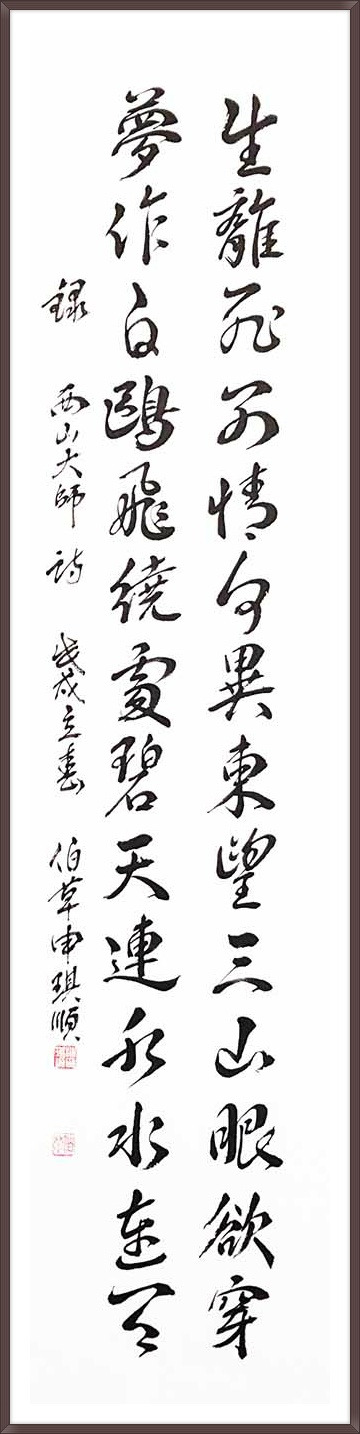 生離死別情何異東望三山眼欲穿
夢作白鷗飛繞處碧天連水水連天
錄 西山大師 詩 戊戌立春 伯草申琪順